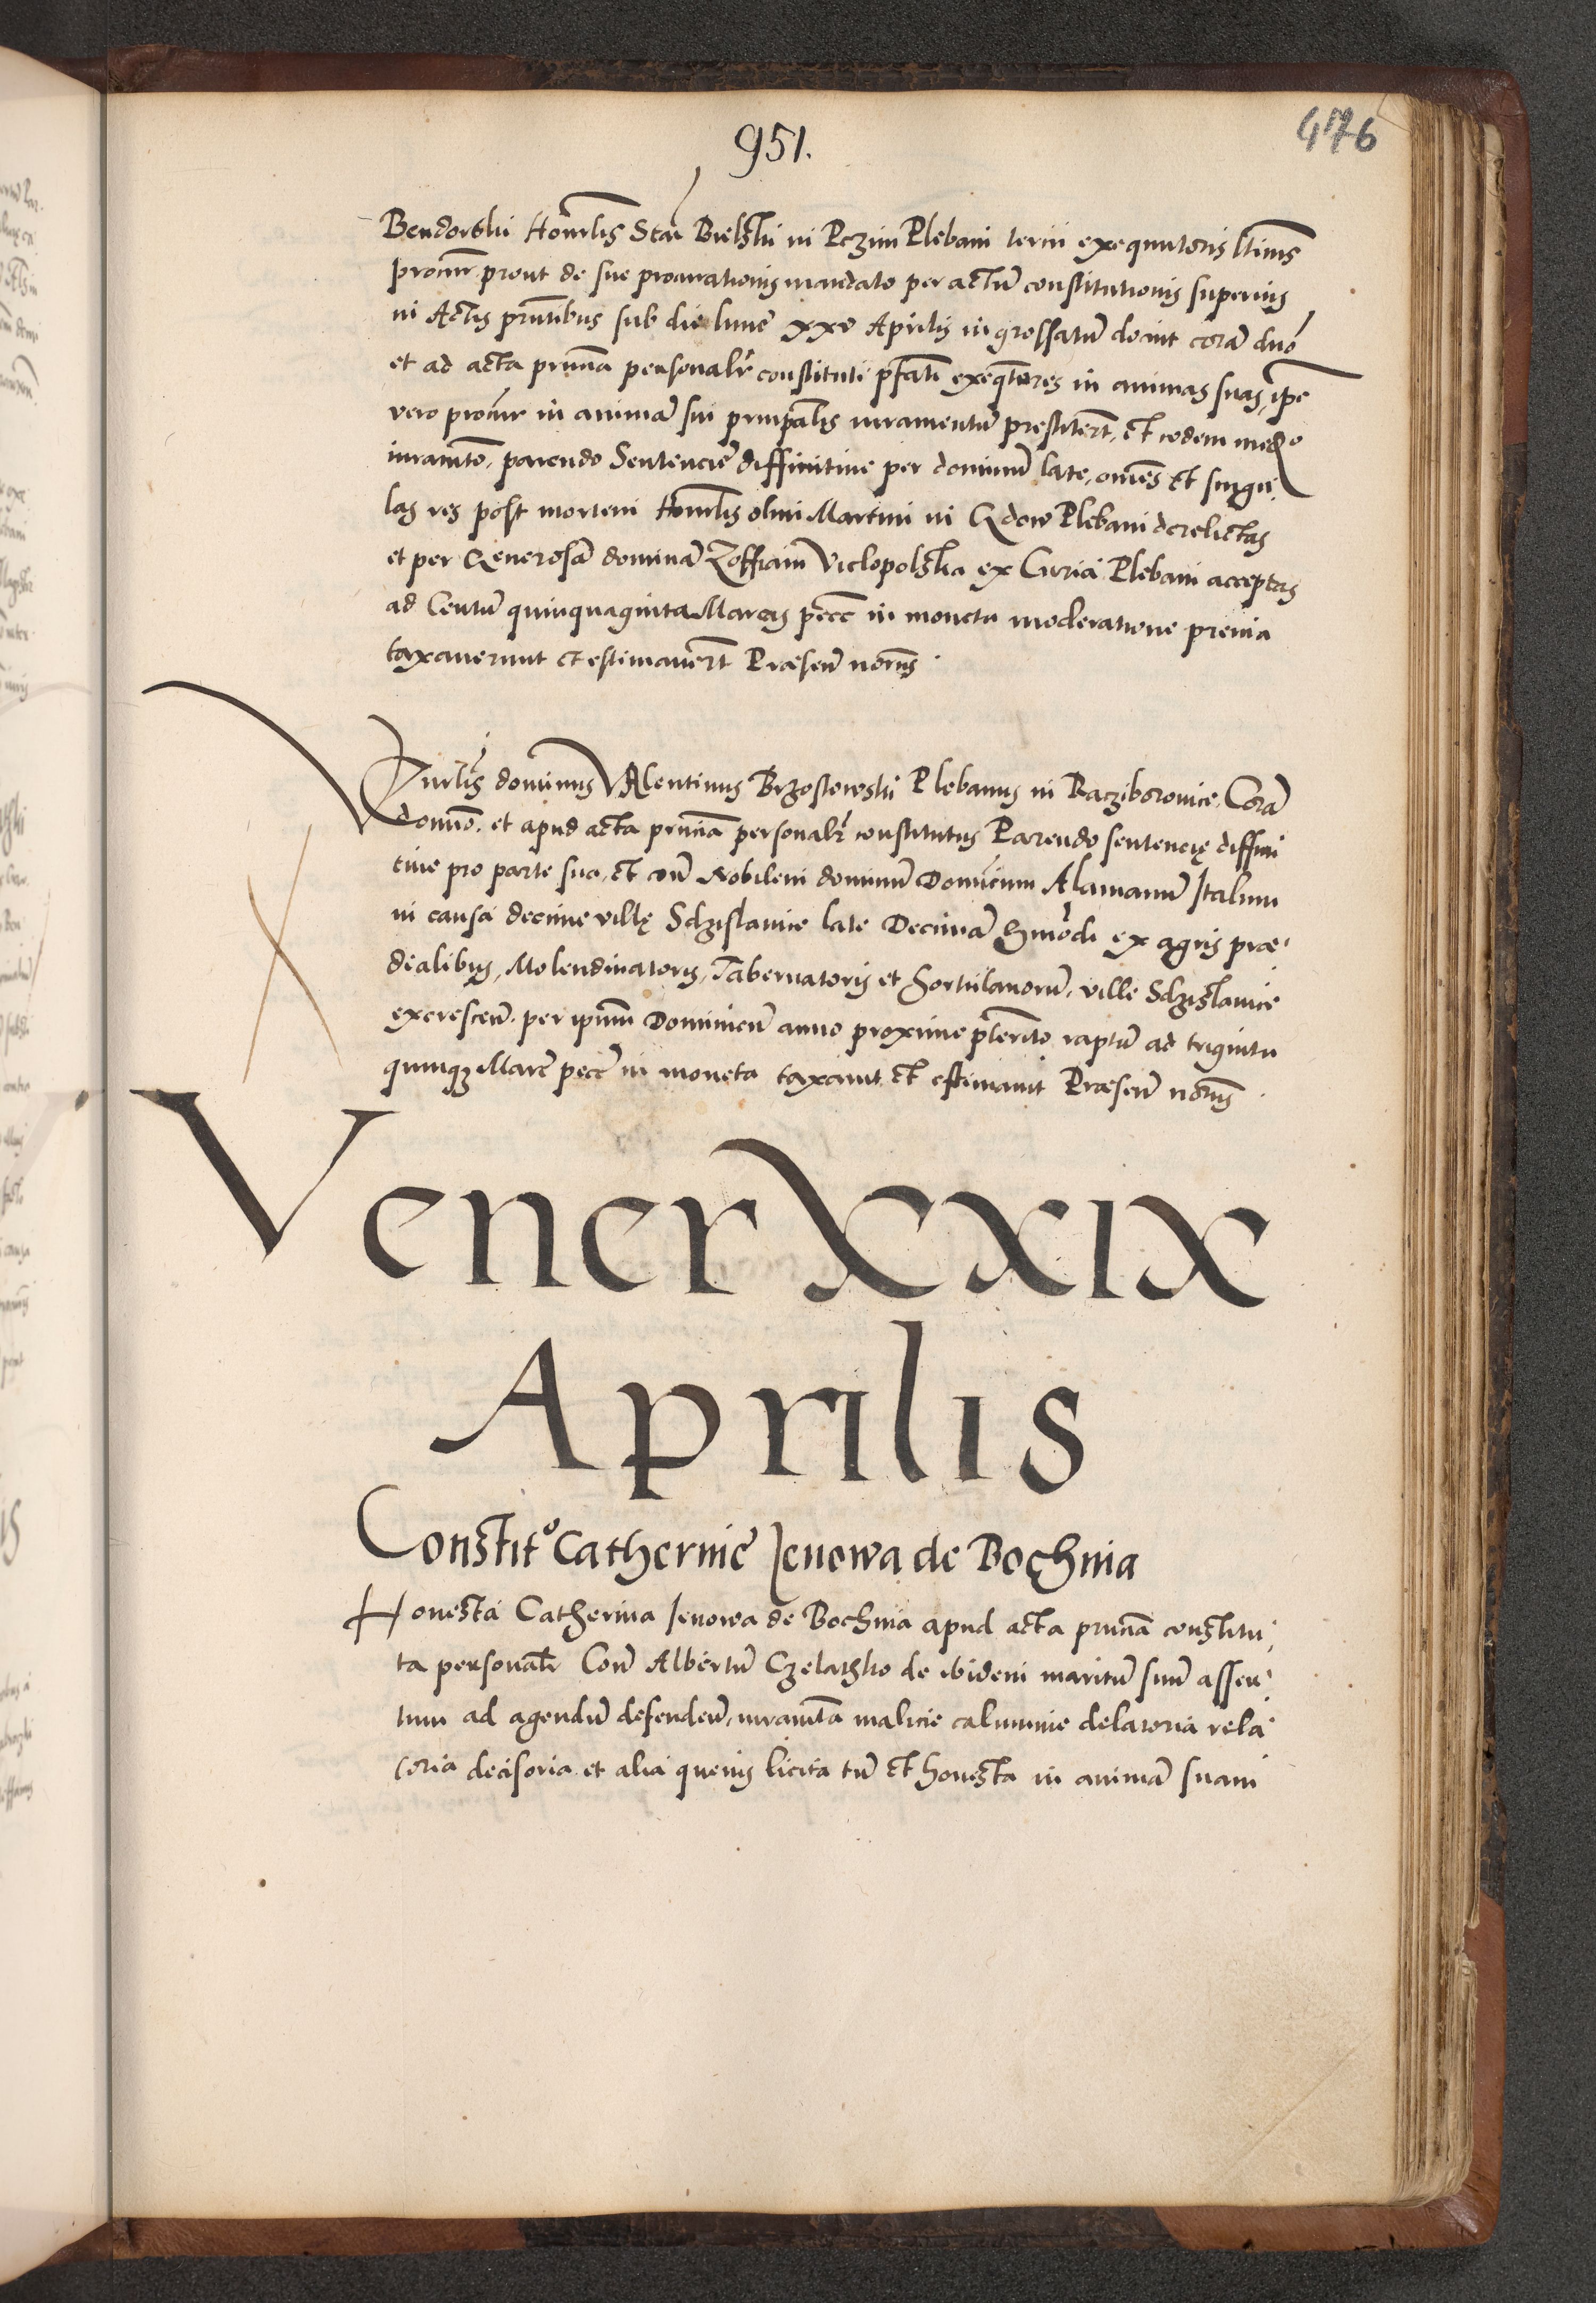 951.
476
Bendorskii Honorlis Stai Bielski in Pczim Plebani tercii exequutoris ltimus
procur prout de sue procurationis mandato per actum constitutionis superius
in Actis pruntibus sub die lune xxv Aprilis ingrossatum docuit coram dno
et ad acta prunta personalr constituti pfati exeqtores in animas suas, ipse
vero procur in animam sui prinpalis iuramentum prestitert, et eodem medio
iuramto, parendo Sentencie diffinitive per dominum late, omnes et singu
las res post mortem Honorlis olim Martini in Gdow Plebani derelictas
et per Generosam dominam Zoffiam Vielopolska ex Curia Plebani acceptas
ad Centum quinquaginta Marcas pecc in moneta moderatione previa
taxaverunt et estimavert Præsen notris
Vnrlis dominus Valentinus Brzostowski Plebanus in Racziborovice. Coram
domno. et apud acta prunta personalr constitutus Parendo sentencię diffini
tive pro parte sua, et con Nobilem dominum Dominicum Alamanum Italum
in causa decime villę Sdzislavice late Decimam Hmodi ex agris præ
dialibus, Molendinatoris, Tabernatoris et hortulanorum, ville Sdzislavice
excrescen. per ipsum Dominicum anno proxime pterito raptum ad triginta
quinqz Marc pecc in moneta taxavit et estimavit Præsen notris
Vener XXIX
Aprilis
Constito Catherine Jenowa de Bochnia
Honesta Catherina Jenowa de Bochnia apud acta prunta constitu
ta personalr Con Albertum Czelathko de ibidem maritum suum assen
tum ad agendum defenden, iuramta malicie calumnie delatoria rela
toria decisoria et alia quevis licita tn et honesta in animam suam